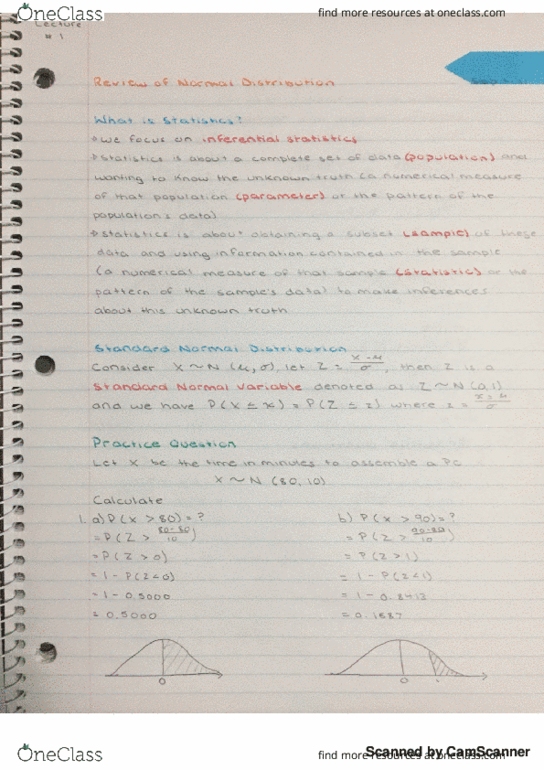 OneClass
find more resources at oneclass.com
Lecture
#1
Review of Normal Distribution
What is Statistics?
we focus on inferential statistics
Statistics is about a complete set of data (population) and
wanting to know the unknown truth (a numerical measure
of that population (parameter) or the pattern of the
population's data)
Statistics is about obtaining a subset (sample) of these
data and using information contained in the sample
(a numerical measure of that sample (statistic) or the
pattern of the sample's data) to make inferences
about this unknown truth
Standard Normal Distribution
Consider X ~ N (μ, σ), let Z = X-μ/σ, then Z is a
Standard Normal Variable denoted as Z ~ N (0,1)
and we have P(X ≤ x) = P(Z ≤ z) where z = x-μ/σ
Practice Question
Let X be the time in minutes to assemble a PC
X ~ N (80, 10)
Calculate
1. a) P(X > 80) = ?
= P(Z > 80-80/10)
= P(Z > 0)
= 1 - P(Z < 0)
= 1 - 0.5000
= 0.5000
0
b) P(X > 90) = ?
= P(Z > 90-80/10)
= P(Z > 1)
= 1 - P(Z < 1)
= 1 - 0.8413
= 0.1587
0
OneClass
find more resources at oneclass.com
Scanned by CamScanner